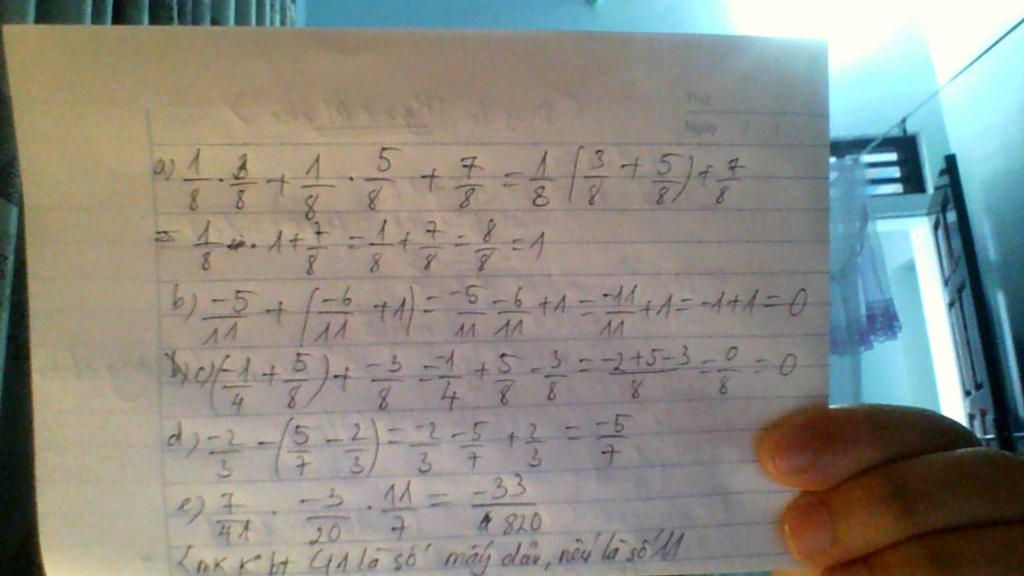 Thứ
Ngày
a) 1/8 . 3/8 + 1/8 . 5/8 + 7/8 = 1/8 (3/8 + 5/8) + 7/8
= 1/8 . 1 + 7/8 = 1/8 + 7/8 = 8/8 = 1
b) -5/11 + (-6/11 + 1) = -5/11 - 6/11 + 1 = -11/11 + 1 = -1 + 1 = 0
c) (-1/4 + 5/8) + -3/8 = -1/4 + 5/8 - 3/8 = -2+5-3/8 = 0/8 = 0
d) -2/3 - (5/7 - 2/3) = -2/3 - 5/7 + 2/3 = -5/7
e) 7/41 . -3/20 . 11/7 = -33/820
mk k bt 41 là số mấy đâu, nếu là số 11